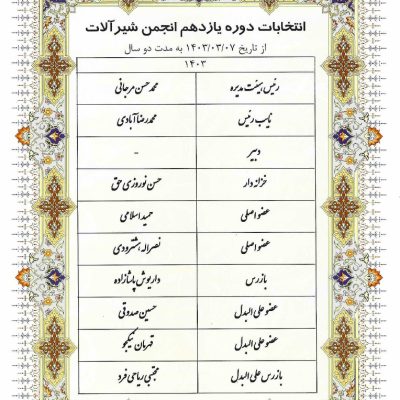 انتخابات دوره یازدهم انجمن شیرآلات
از تاریخ ۱۴۰۳/۰۳/۰۷ به مدت دو سال
۱۴۰۳
رئیس هیئت مدیره محمدحسن مرجانی
نایب رئیس محمدرضا آبادی
دبیر -
خزانه دار حسن نوروزی حق
عضو اصلی حمید اسلامی
عضو اصلی نصراله هشترودی
بازرس داریوش پاشازاده
عضو علی البدل حسین صدوقی
عضو علی البدل قهرمان نیکجو
بازرس علی البدل مجتبی ریاحی فرد